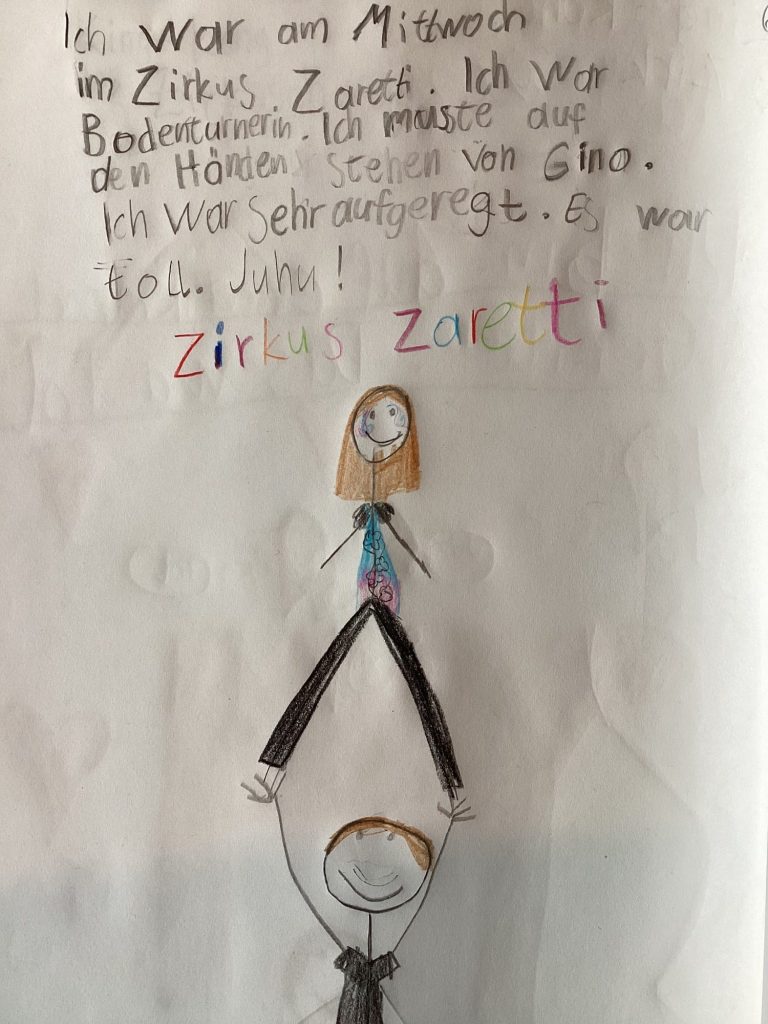 Ich war am Mittwoch
im Zirkus Zaretti. Ich war
Bodenturnerin. Ich muste auf
den Händen stehen von Gino.
Ich war sehr aufgeregt. Es war
toll. Juhu!
Zirkus Zaretti